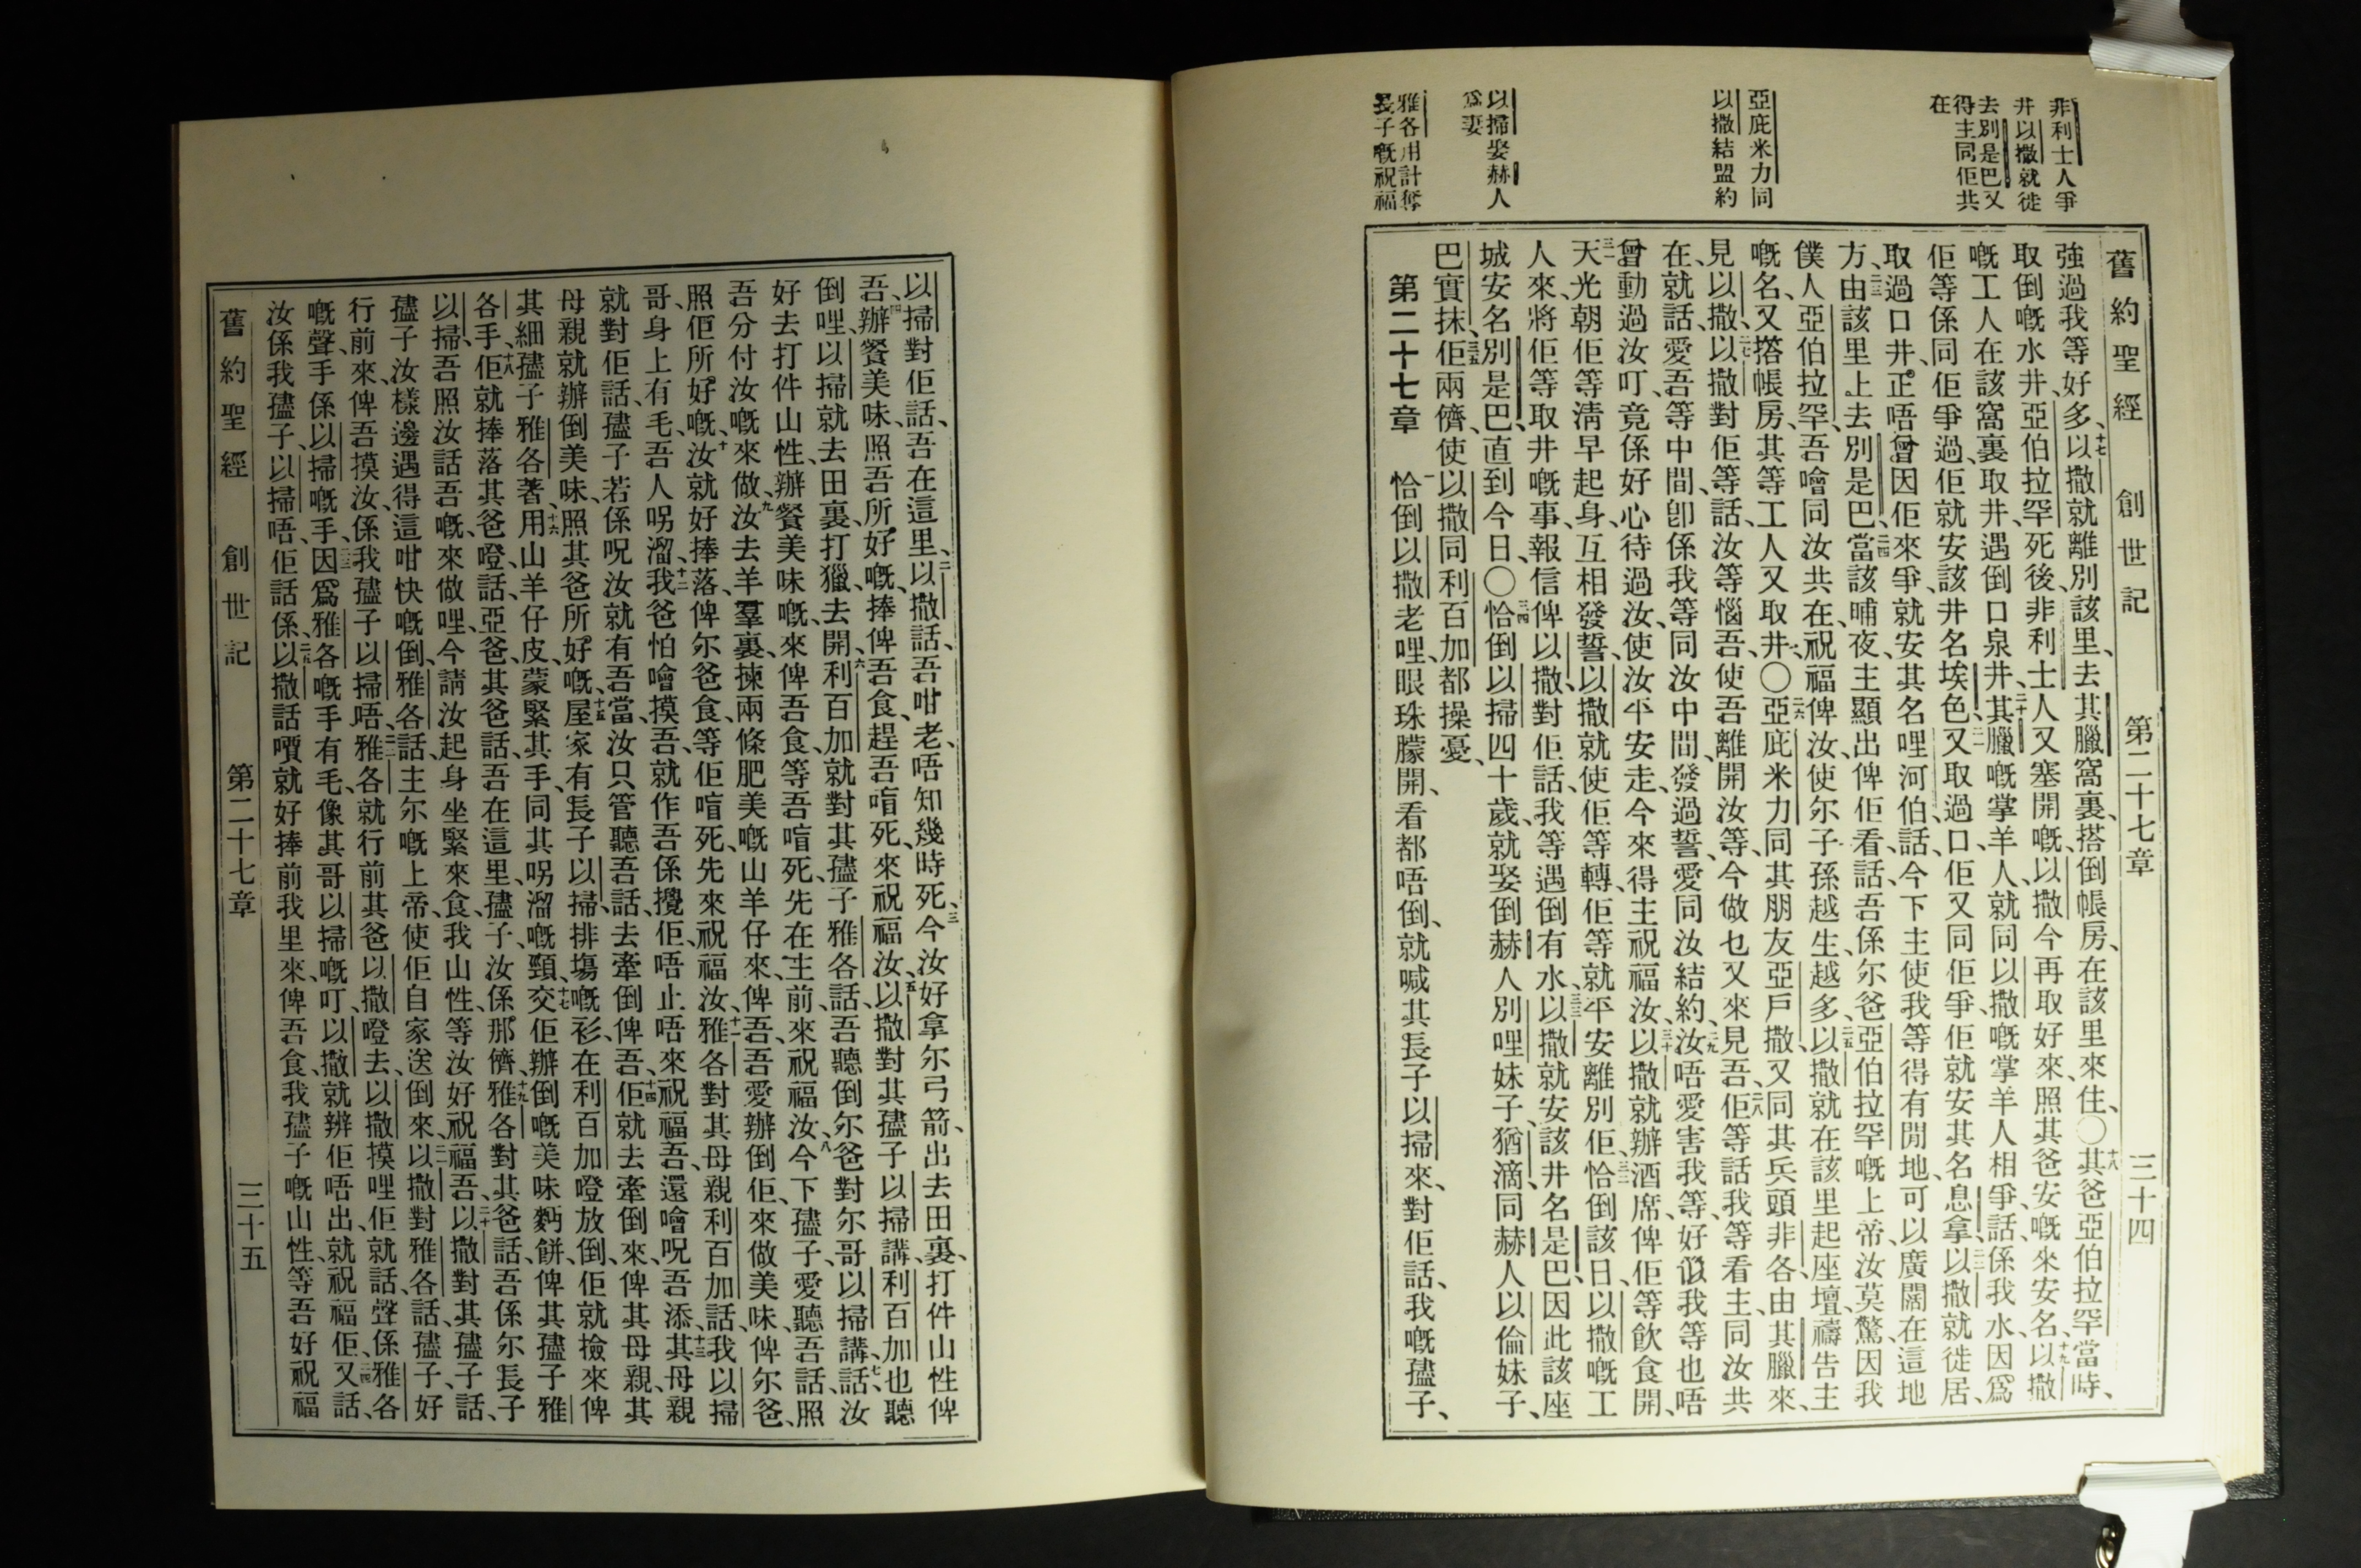 非利士人爭
井以撒就徙
去別是巴又
得主同佢共
在
亞庇米力同
以撒結盟約
以掃娶赫人
爲妻
雅各用計奪
長子嘅祝福
舊約聖經 創世記 第二十七章 三十四
強過我等好多、十七以撒就離別該里、去其臘窩裏、搭倒帳房、在該里來住、〇十八其爸亞伯拉罕當時、
取倒嘅水井、亞伯拉罕死後、非利士人又塞開嘅、以撒今再取好來、照其爸安嘅來安名、十九以撒
嘅工人在該窩裏取井、遇倒口泉井、二十其臘嘅掌羊人、就同以撒嘅掌羊人相爭、話、係我水、因爲
佢等係同佢爭過、佢就安該井名埃色、二一又取過口、佢又同佢爭、佢就安其名息拿、二二以撒就徙居、
取過口井、正唔曾因佢來爭、就安其名哩河伯、話、今下主使我等得有閒地、可以廣闊在這地
方、二三由該里上去別是巴、二四當該晡夜、主顯出俾佢看、話、吾係尔爸亞伯拉罕嘅上帝、汝莫驚、因我
僕人亞伯拉罕、吾噲同汝共在、祝福俾汝、使尔子孫越生越多、二五以撒就在該里起座壇、禱告主
嘅名、又搭帳房、其等工人又取井、〇二六亞庇米力同其朋友亞戶撒、又同其兵頭非各、由其臘來、
見以撒、二七以撒對佢等話、汝等惱吾、使吾離開汝等、今做乜又來見吾、二八佢等話、我等看主同汝共
在、就話、愛吾等中間、卽係我等同汝中間、發過誓、愛同汝結約、二九汝唔愛害我等、好似我等也唔
曾動過汝叮、竟係好心待過汝、使汝平安走、今來得主祝福汝、三十以撒就辦酒席俾佢等飮食開、
三一天光朝佢等淸早起身、互相發誓、以撒就使佢等轉、佢等就平安離別佢、三二恰倒該日、以撒嘅工
人來、將佢等取井嘅事、報信俾以撒、對佢話、我等遇倒有水、三三以撒就安該井名是巴、因此該座
城安名別是巴、直到今日、〇三四恰倒以掃四十歲、就娶倒赫人別哩妹子、猶滴、同赫人以倫妹子、
巴實抹、三五佢兩儕、使以撒同利百加都操憂、
第二十七章 一恰倒以撒老哩、眼珠朦開、看都唔倒、就喊其長子以掃來、對佢話、我嘅孻子、
以掃對佢話、吾在這里、二以撒話、吾咁老、唔知幾時死、三今汝好拿尔弓箭、出去田裏、打件山性俾
吾、四辦餐美味、照吾所好嘅、捧俾吾食、趕吾唷死、來祝福汝、五以撒對其孻子以掃講、利百加也聽
倒哩、以掃就去田裏、打獵去開、六利百加就對其孻子雅各話、吾聽倒尔爸對尔哥以掃講、七話、汝
好去打件山性、辦餐美味嘅、來俾吾食、等吾唷死、先在主前、來祝福汝、八今下孻子、愛聽吾話、照
吾分付汝嘅來做、九汝去羊羣裏、揀兩條肥美嘅山羊仔來、俾吾、吾愛辦倒佢、來做美味、俾尔爸、
照佢所好嘅、十汝就好捧落俾尔爸食、等佢唷死、先來祝福汝、十一雅各對其母親利百加話、我以掃
哥、身上有毛、吾人呺溜、十二我爸怕噲摸吾、就作吾係攪佢、唔止唔來祝福吾、還噲呪吾添、十三其母親
就對佢話、孻子若係呪汝、就有吾當、汝只管聽吾話、去牽倒俾吾、十四佢就去牽倒來、俾其母親、其
母親就辦倒美味、照其爸所好嘅、十五屋家有長子以掃排塲嘅衫、在利百加噔放倒、佢就撿來俾
其細孻子雅各著、十六用山羊仔皮、蒙緊其手、同其呺溜嘅頸、十七交佢辦倒嘅美味麪餅、俾其孻子雅
各手、十八佢就捧落其爸噔、話、亞爸、其爸話、吾在這里、孻子、汝係那儕、十九雅各對其爸話、吾係尔長子
以掃、吾照汝話吾嘅、來做哩、今請汝起身坐緊來食、我山性、等汝好祝福吾、二十以撒對其孻子話、
孻子汝樣邊遇得這咁快嘅倒、雅各話、主尔嘅上帝、使佢自家送倒來、二一以撒對雅各話、孻子、好
行前來、俾吾摸汝、係我孻子以掃唔、二二雅各就行前其爸以撒噔去、以撒摸哩佢、就話、聲係雅各
嘅聲、手係以掃嘅手、二三因爲雅各嘅手有毛、像其哥以掃嘅叮、以撒就辨佢唔出、就祝福佢、二四又話、
汝係我孻子、以掃唔、佢話係、二五以撒話噴就好捧前我里來、俾吾食、我孻子嘅山性、等吾好祝福
舊約聖經 創世記 第二十七章 三十五